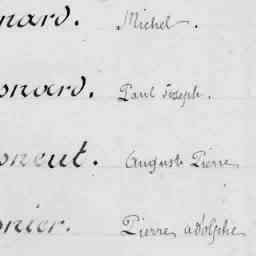 nard. Michel.
onard. Paul Joseph.
oneut. Auguste Pierre
onier. Pierre adolphe